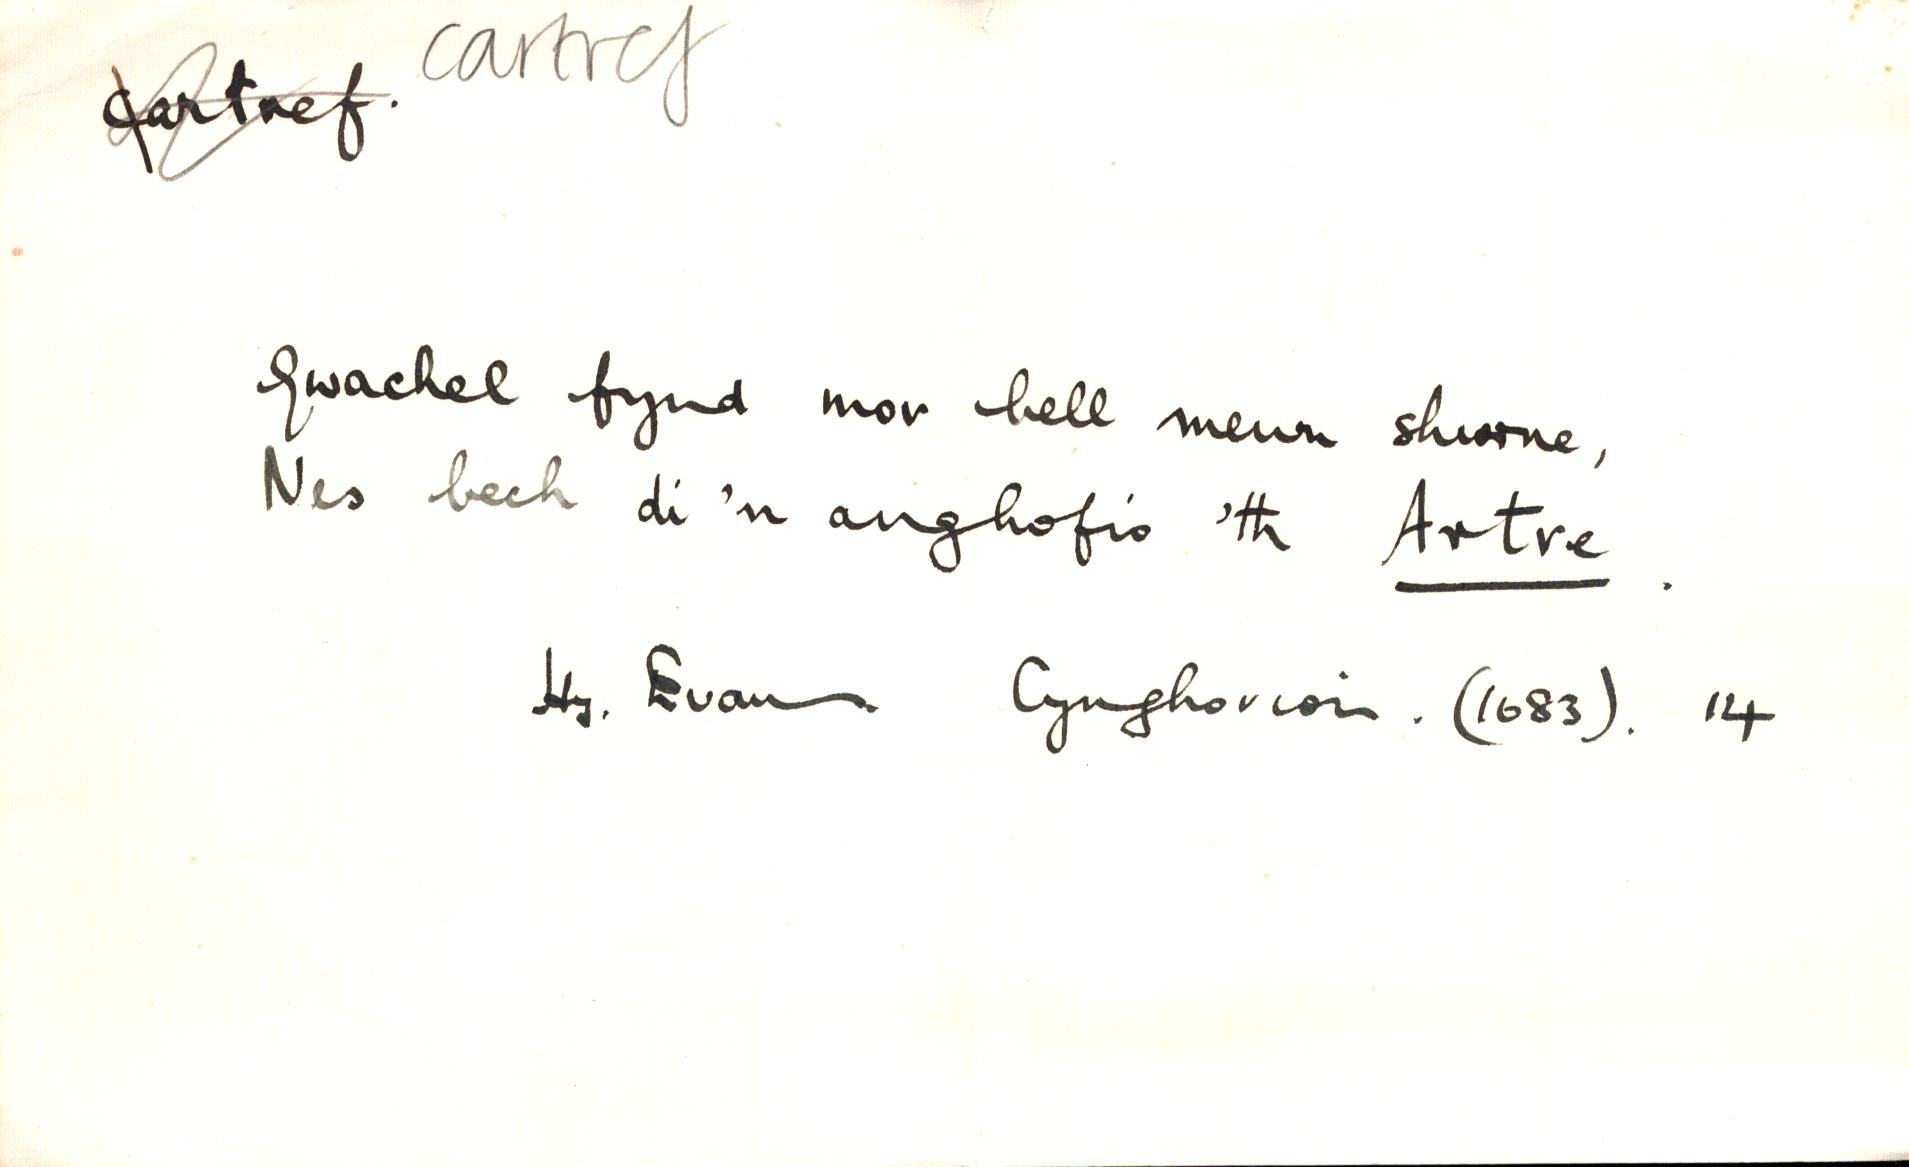 cartref
cartref.
Gwachel fynd mor bell mewn shwrne,
Nes bech di'n anghofio 'th Artre.
Hy. Evans Cynghorion. (1683). 14